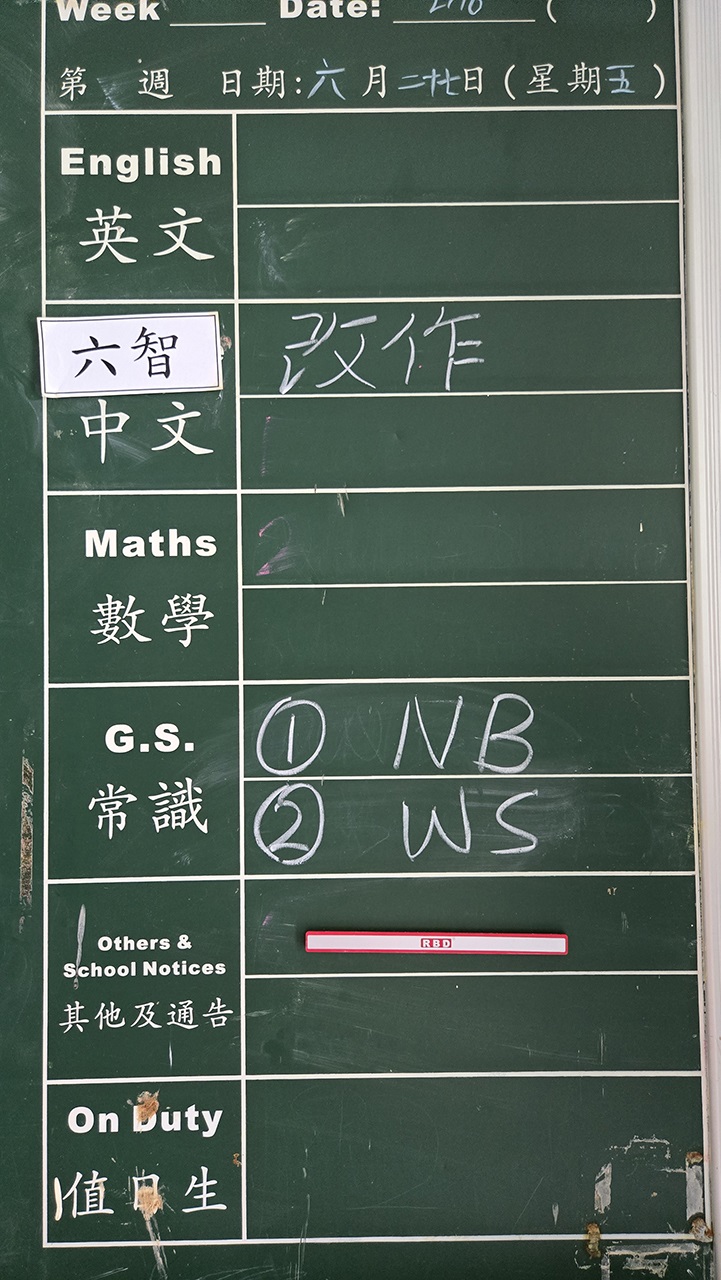 Week Date: 27/6 ( )
第 週 日期:六月二廿七日(星期五)
English
英文
六智
改作
中文
Maths
2
數學
G.S.
① NB
常識
② WS
Others &
School Notices
RBD
其他及通告
On Duty
值日生